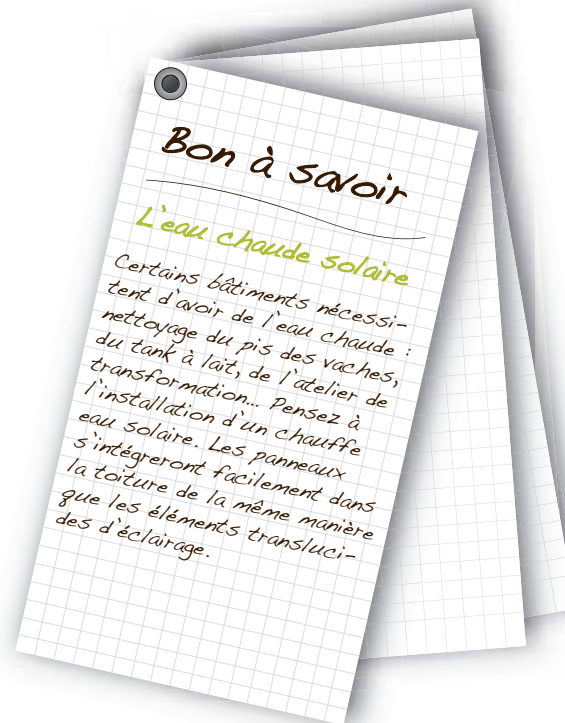 Bon à savoir
L'eau chaude solaire
Certains bâtiments nécessi-
tent d'avoir de l'eau chaude :
nettoyage du pis des vaches,
du tank à lait, de l'atelier de
transformation... Pensez à
l'installation d'un chauffe
eau solaire. Les panneaux
s'intégreront facilement dans
la toiture de la même manière
que les éléments transluci-
des d'éclairage.